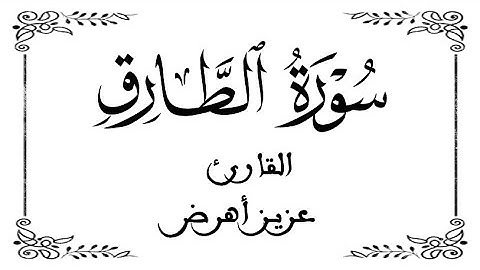 سُوْرَةُ ٱلطَّارِق
القارئ
عزيز أهرض